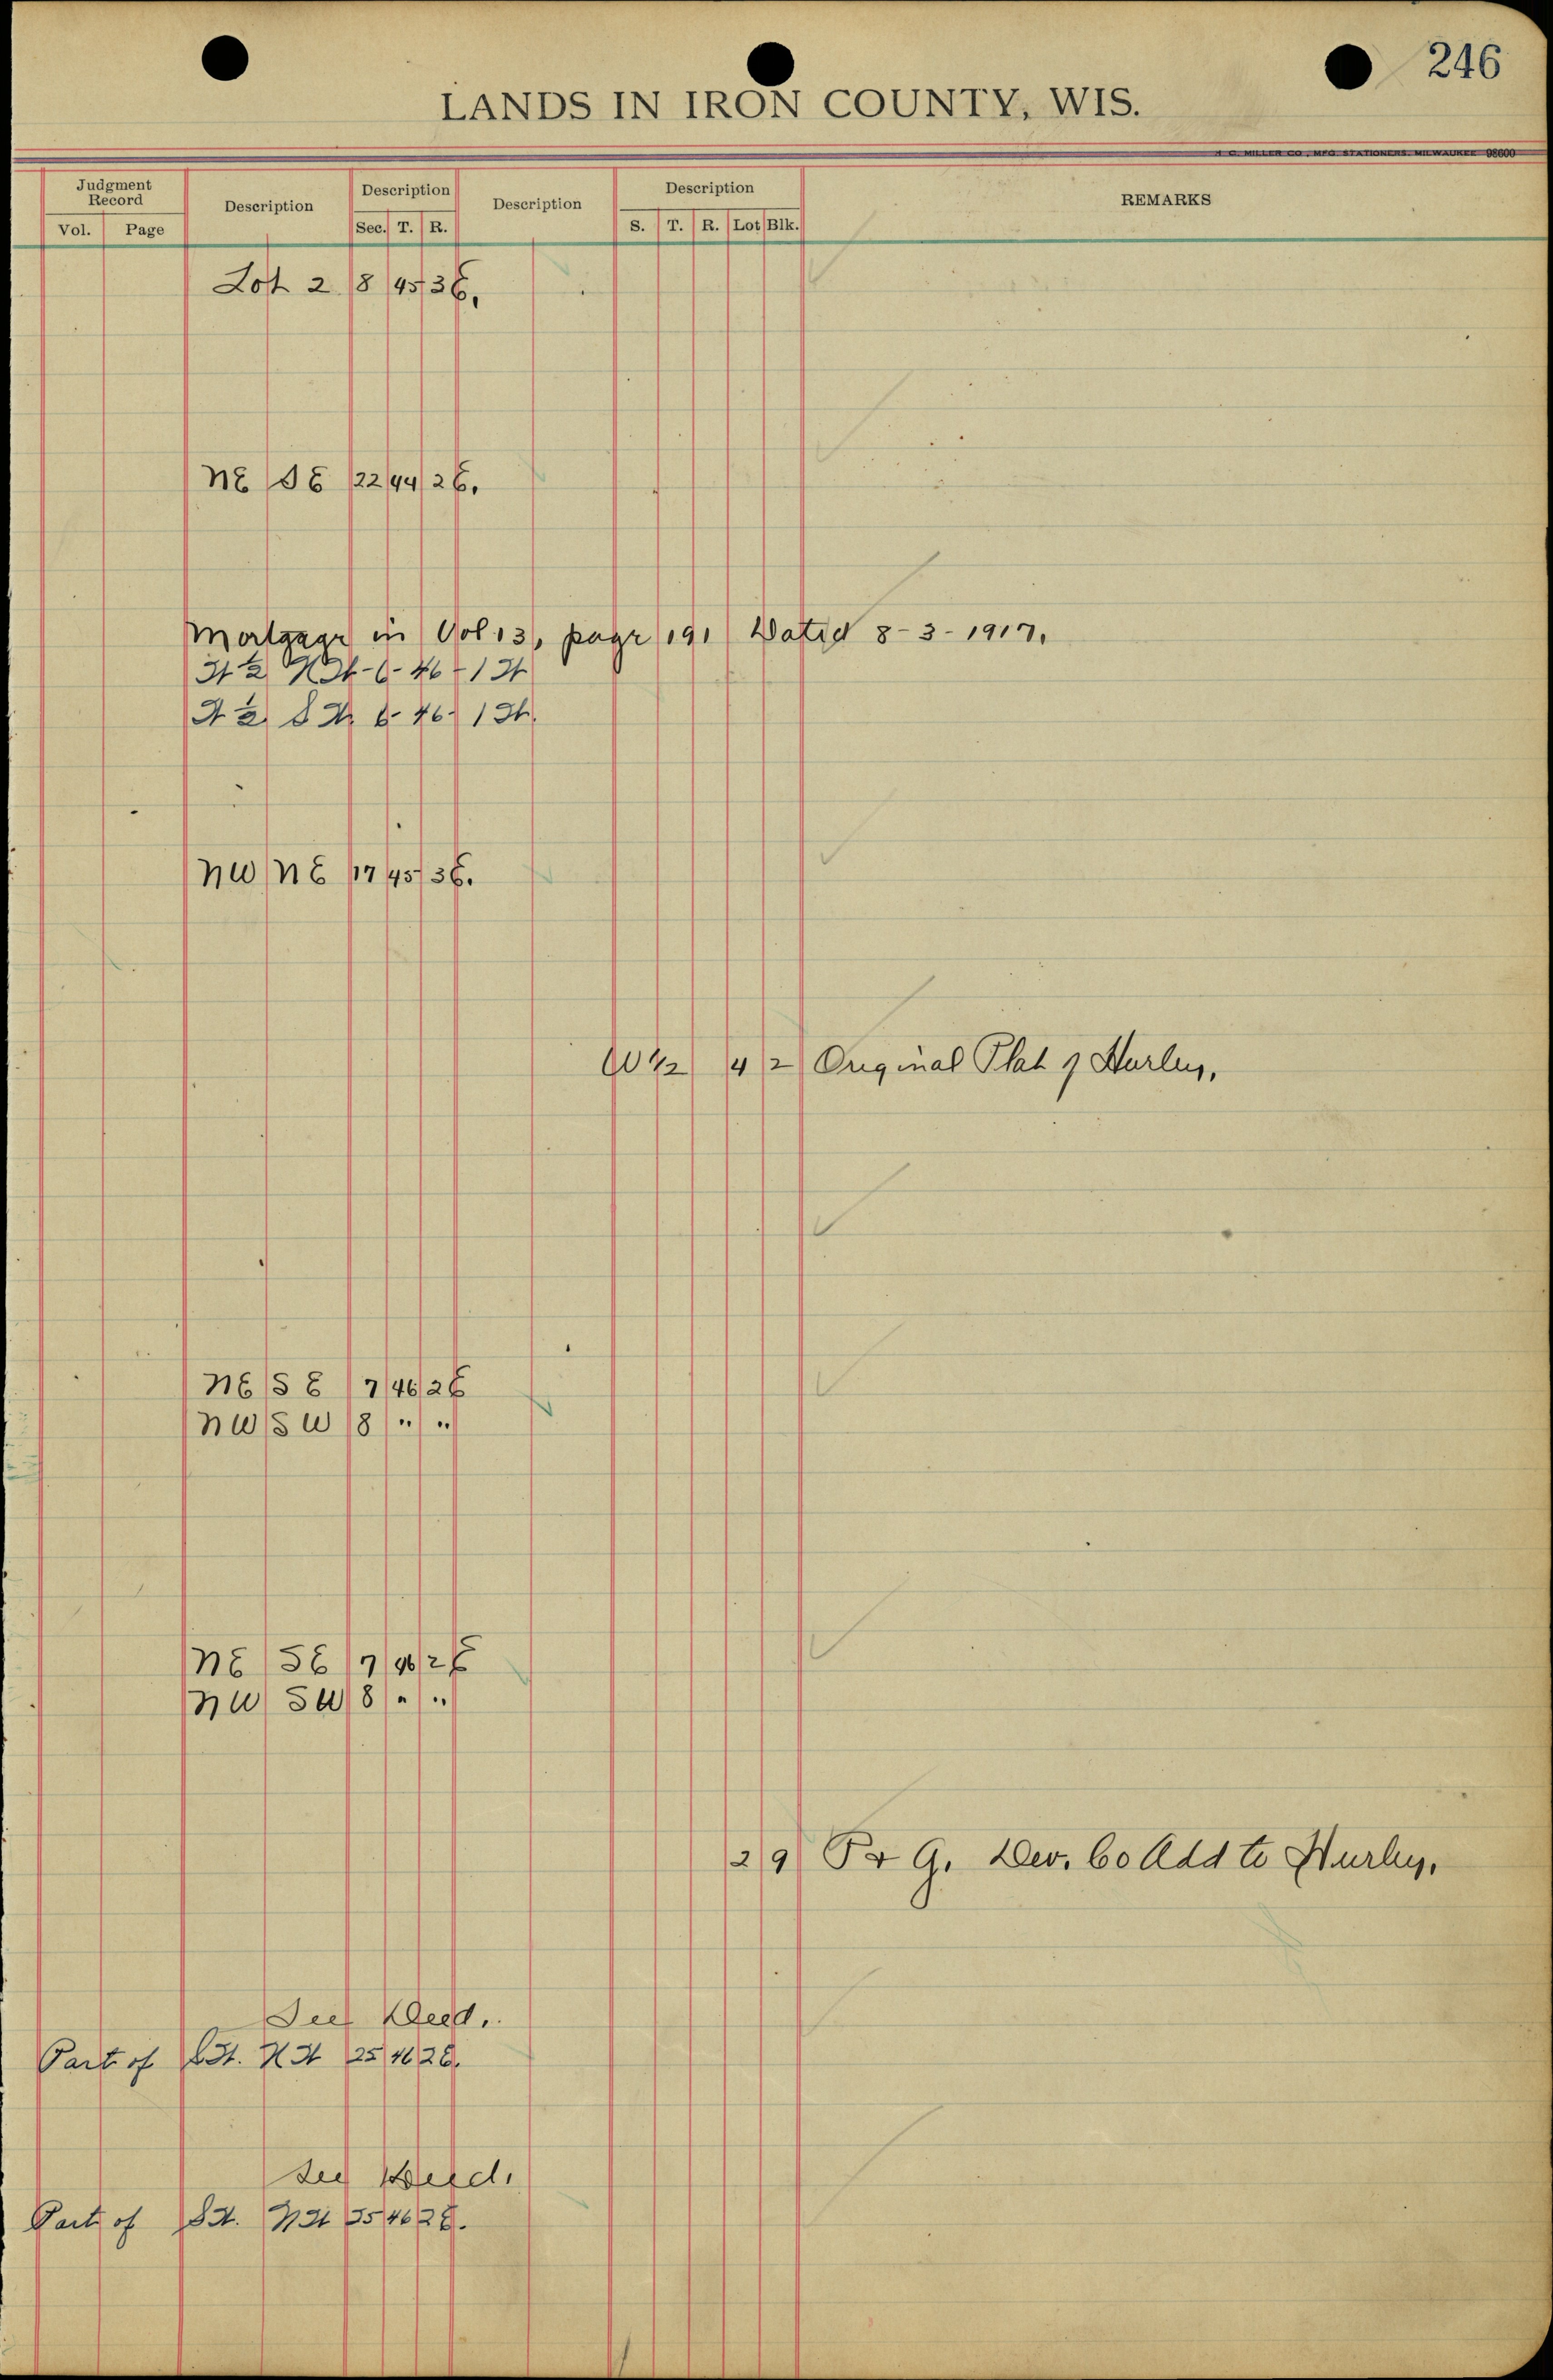 246
LANDS IN IRON COUNTY, WIS.
H. C. MILLER CO., MFG STATIONERS, MILWAUKEE 98600
Judgment Record Description Description Description Description REMARKS
Vol. Page Sec. T. R. S. T. R. Lot Blk.
Lot 2 8 45 3E.
NE SE 22 44 2E.
Mortgage in Vol 13, page 191 Dated 8-3-1917.
W 2 NW-6-46-1W
W 2 SW 6-46-1W.
NW NE 17 45 3E.
W 1/2 4 2 Original Plat of Hurley,
NE SE 7 46 2E
NW SW 8 " "
NE SE 7 46 2E
NW SW 8 " "
2 9 P & G. Dev. Co Add to Hurley.
See Deed.
Part of SW. NW 25 46 2E.
See Deed.
Part of SW. NW 25 46 2E.